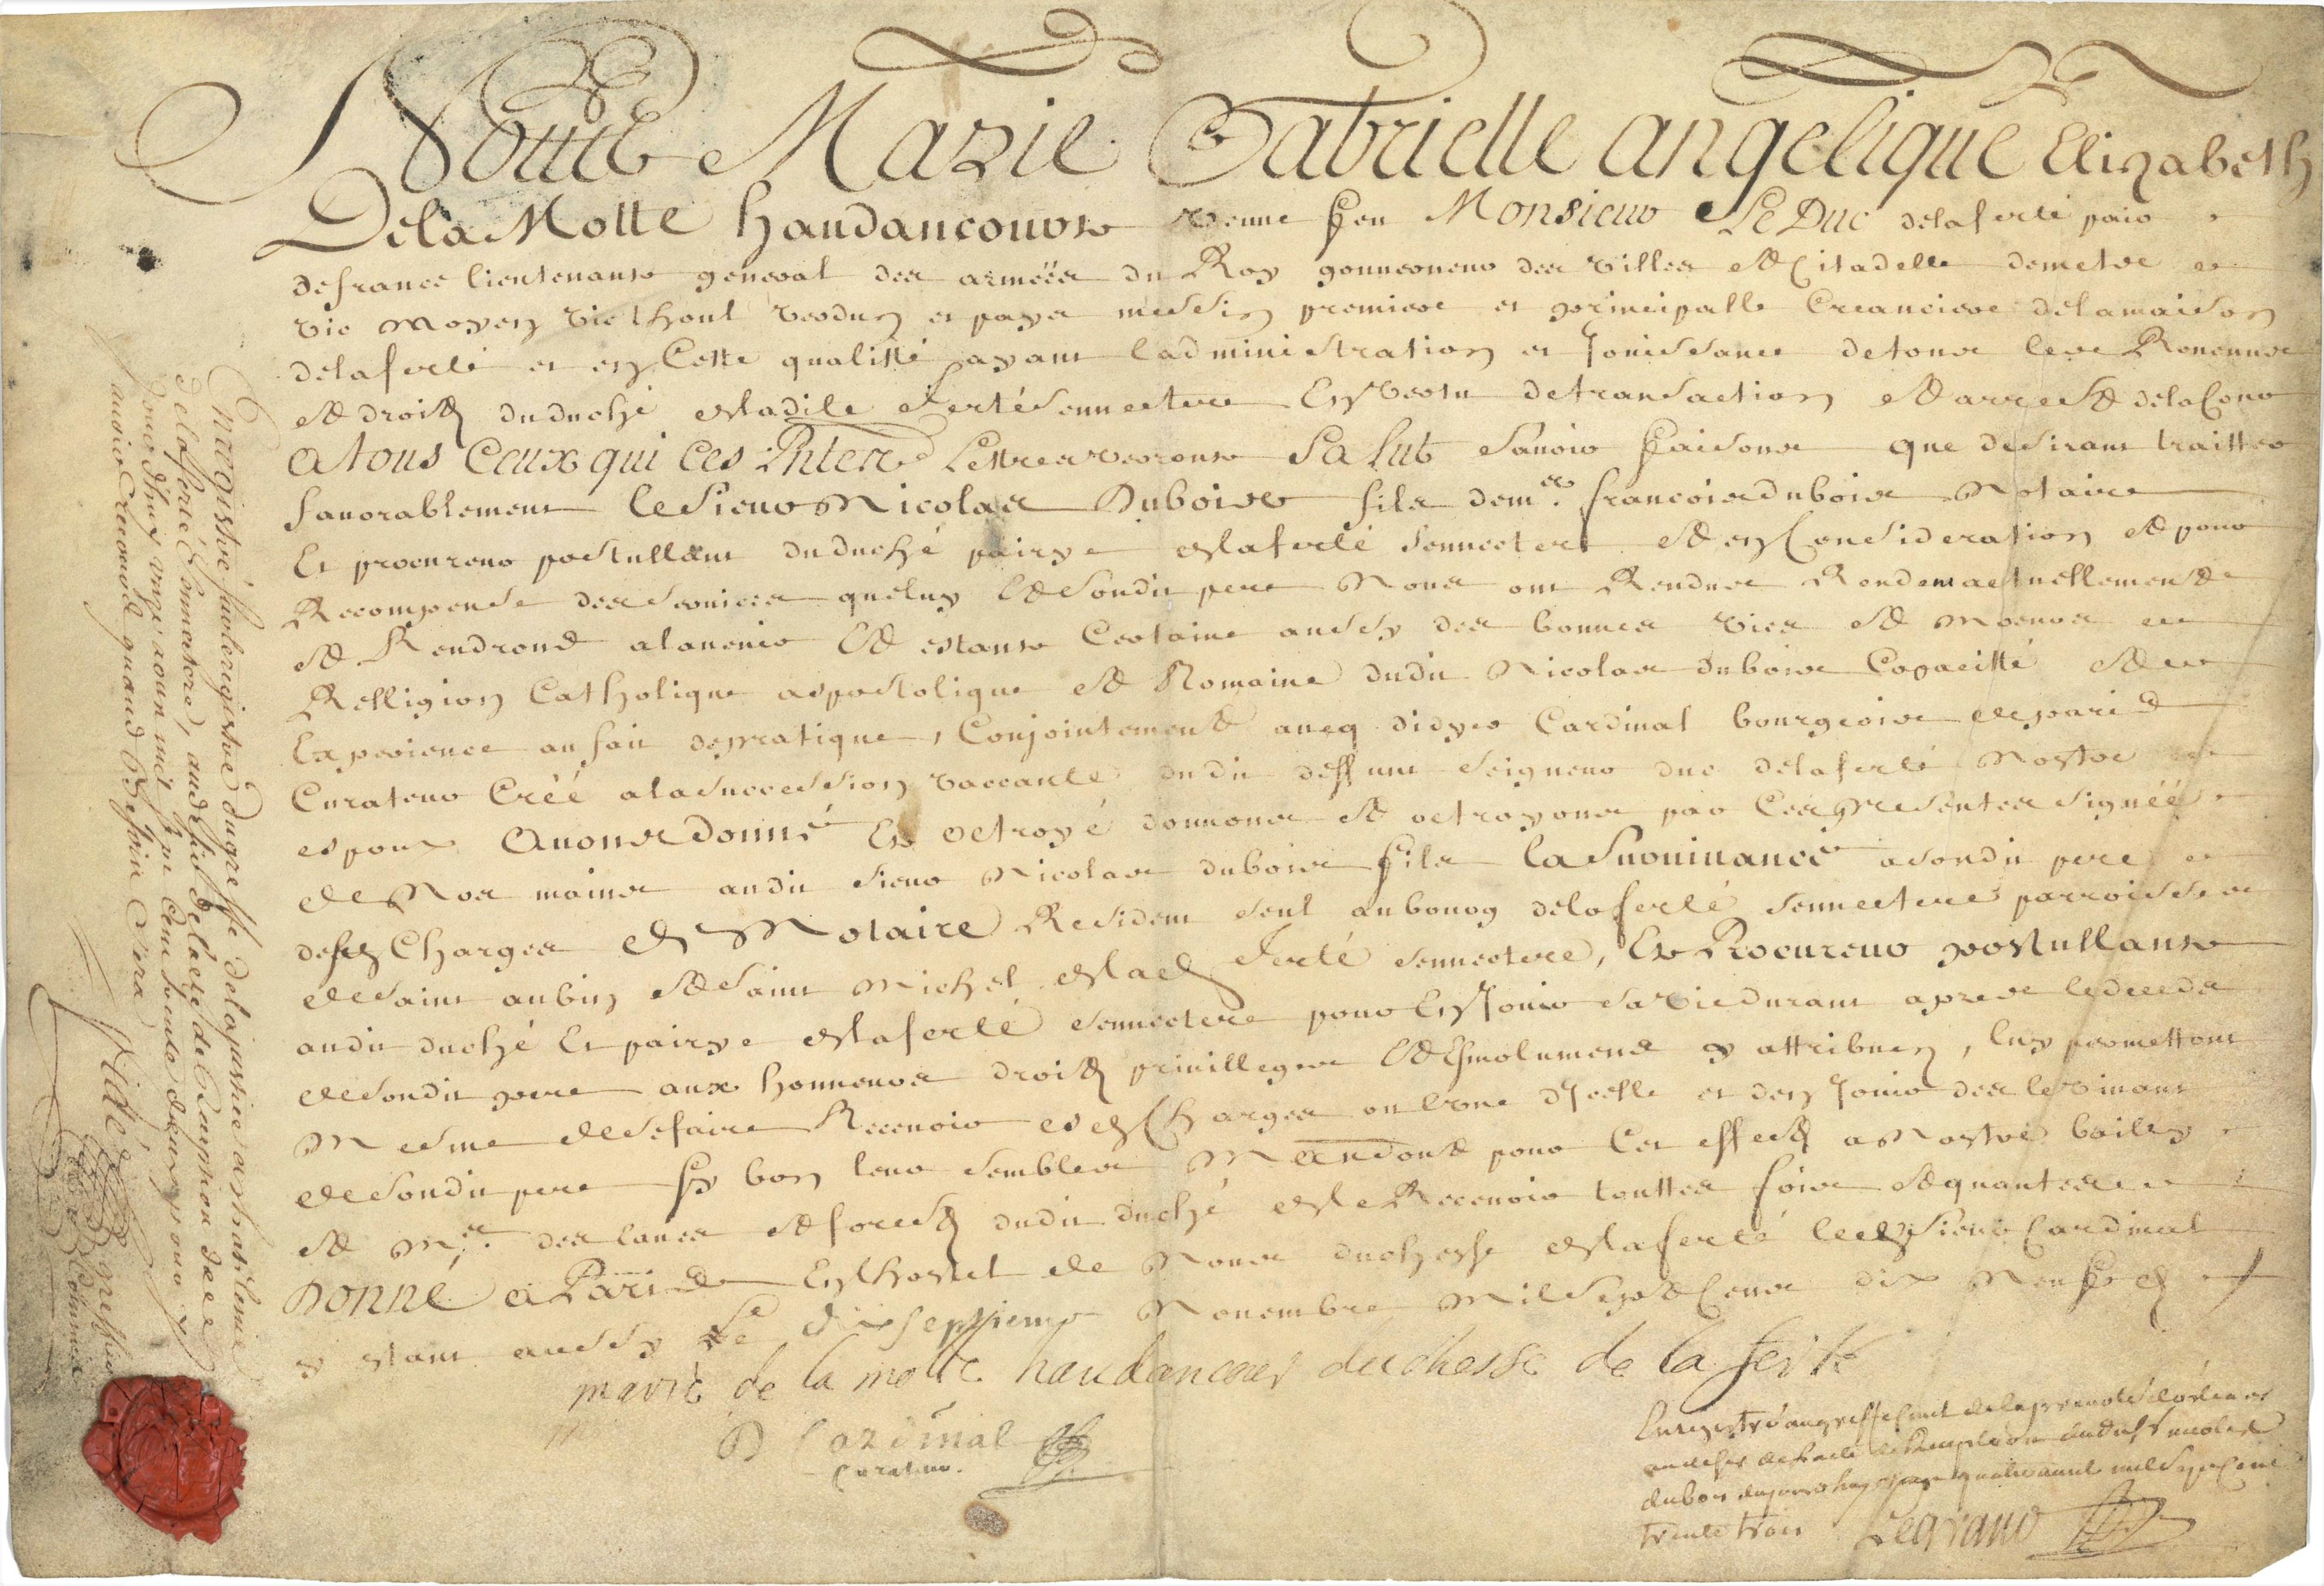 Nous Marie Gabrielle angelique Elizabeth
De la Motte haudancourt veuue feu Monsieur Le Duc de la ferté pair
de france lieutenant general des armées du Roy gouuerneur des villes et Citadelle de metz et
vic moyen vic thoul verdun et pays messin premiere et principalle Creanciere de la maison
de la ferté et en Cette qualitté ayant l'administration et Jouissance de tous les Reuenus
et droits du duché de la dite ferté senneterre En vertu de transaction et arrests de la Cour
A tous Ceux qui ces Pntes Lettres verront Salut sauoir faisons que desirant traitter
fauorablement le sieur Nicolas Dubois fils de mre. francois dubois Notaire
Et procureur postullant du duché pairye de la ferté senneterre et en Consideration et pour
Recompense des seruices que luy et son dit pere Nous ont Rendus Rendent actuellement
et Rendront a l'auenir et estant Certaine aussy des bonnes vies et moeurs
Relligion Catholique apostolique et Romaine dudit Nicolas dubois Capacitté et
Experience au fait de pratique, Conjointement aueq didyer Cardinal bourgeois de paris
Curateur Créé a la succession vaccante dudit deffunt seigneur duc de la ferté Nostre
espoux Auons donné Et octroyé donnons et octroyons par Ces presentes signées
de Nos mains audit sieur Nicolas dubois fils la suruiuance a son dit pere
des Charges de Notaire Resident seul au bourg de la ferté senneterre parroisses
de saint aubin et saint Michel de la ferté senneterre, Et Procureur postullant
audit duché Et pairye de la ferté senneterre pour En Jouir sa vie durant apres le deceds
de son dit pere aux honneurs droits priuilleges et Esmolumens y attribuez, luy promettons
Mesme de se faire Receuoir esd. Charges ou l'vne d'Jcelle et d'en Jouir des le viuant
de son dit pere sy bon leur semble Mandons pour Cet effect a Nostre bailly
et Mre. des eaues et forests dudit duché de le Receuoir touttes fois et quantes
Donné a Paris En l'hostel de Nous duchesse de la ferté led. sieur Cardinal
y estant aussy le dix septieme Nouembre Mil sept Cens dix Neuf
marie de la motte haudancour duchesse de la ferté
D Cardinal
Curateur.
Enregistré au greffe
dubois
trente trois Legrand
Enregistré sur le registre du greffe de la justice
de la ferté senneterre, audesir de l'acte de reception de ce
jour d'huy vnze iour
pour y
auoir recours quand besoin sera